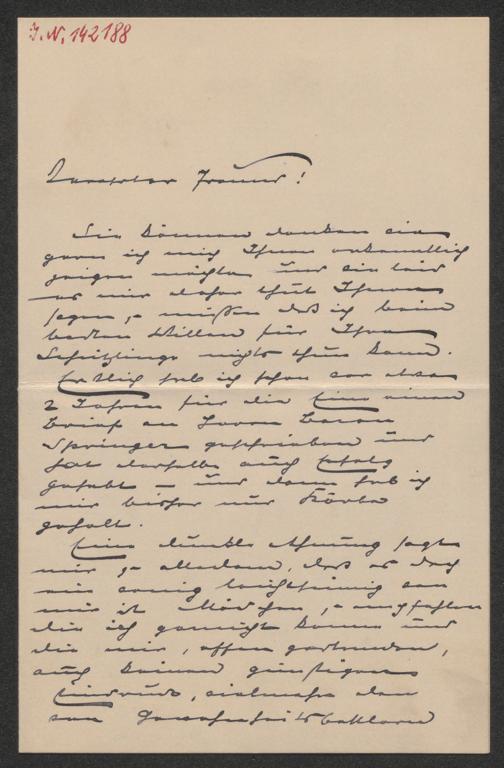 I. N. 142188
Verehrter Freund!
Sie können denken wie
gern ich mich Ihnen erkenntlich
zeigen möchte und wie leid
es mir daher thut Ihnen
sagen zu müssen daß ich beim
besten Willen für Ihre
Schützlinge nichts thun kann.
Erstlich hab ich schon vor etwa
2 Jahren für die Eine einen
Brief an Herrn Baron
Springer geschrieben und
hat derselbe auch Erfolg
gehabt – und dann hab ich
mir bisher nur Körbe
geholt.
Eine dunkle Ahnung sagt
mir zu alledem, daß es doch
ein wenig leichtsinnig von
mir ist Mädchen zu empfehlen
die ich garnicht kenne und
die mir, offen gestanden,
auch keinen günstigen
Eindruck, vielmehr den
von Gewohnheitsbettlern